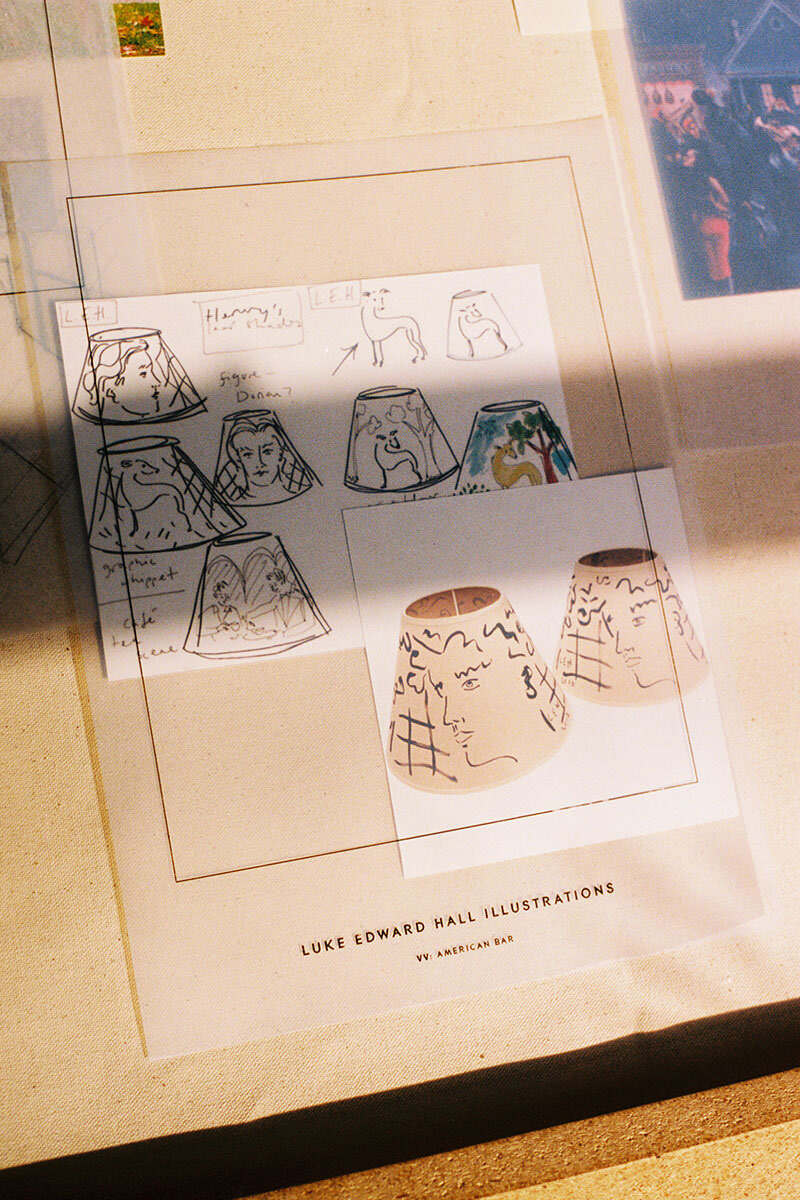 L.E.H.
Henry's
L.E.H.
figure -
Dorian?
graphic
whippet
café
LUKE EDWARD HALL ILLUSTRATIONS
VV: AMERICAN BAR